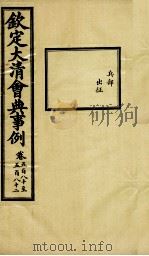 欽定大清會典事例
卷五百八十至
五百八十二
兵部
出征
www.duxiu.com